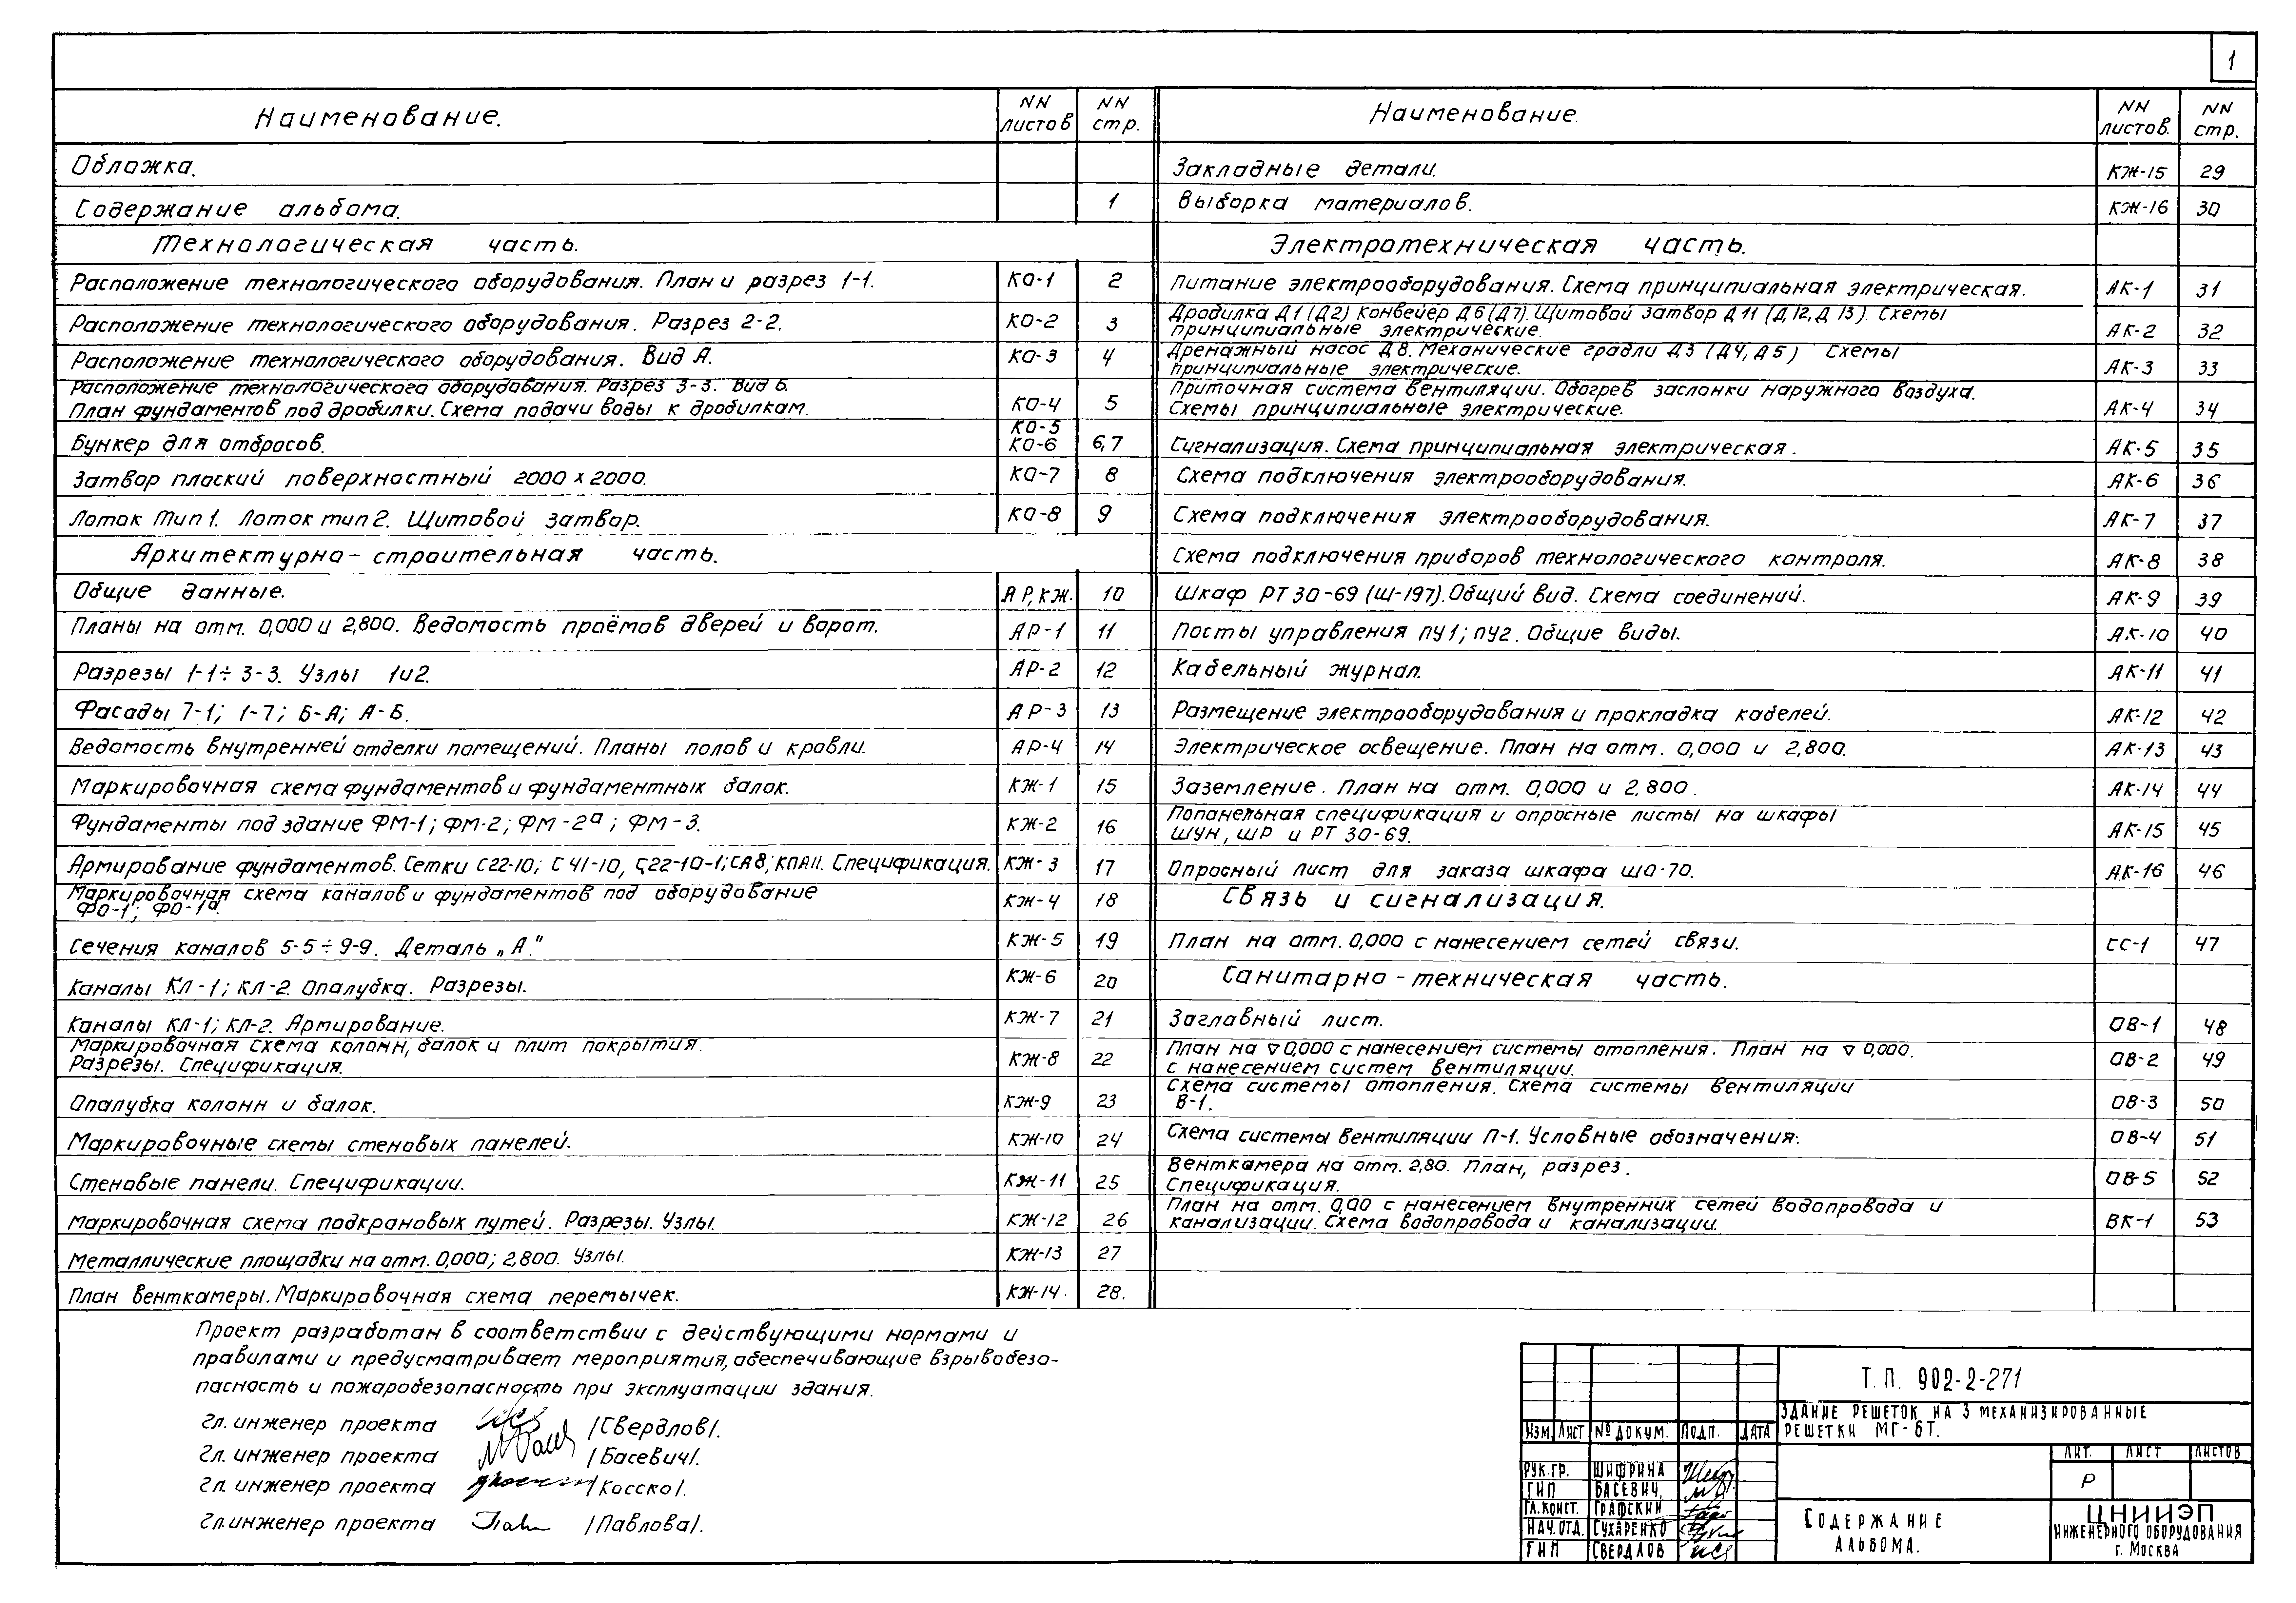 1
Наименование. NN листов NN стр.
Обложка.
Содержание альбома. 1
Технологическая часть.
Расположение технологического оборудования. План и разрез 1-1. КО-1 2
Расположение технологического оборудования. Разрез 2-2. КО-2 3
Расположение технологического оборудования. Вид А. КО-3 4
Расположение технологического оборудования. Разрез 3-3. Вид Б.
План фундаментов под дробилки. Схема подачи воды к дробилкам. КО-4 5
Бункер для отбросов. КО-5 КО-6 6,7
Затвор плоский поверхностный 2000 х 2000. КО-7 8
Лоток тип 1. Лоток тип 2. Щитовой затвор. КО-8 9
Архитектурно-строительная часть.
Общие данные. АР, КЖ. 10
Планы на отм. 0,000 и 2,800. Ведомость проёмов дверей и ворот. АР-1 11
Разрезы 1-1÷3-3. Узлы 1и2. АР-2 12
Фасады 7-1; 1-7; Б-А; А-Б. АР-3 13
Ведомость внутренней отделки помещений. Планы полов и кровли. АР-4 14
Маркировочная схема фундаментов и фундаментных балок. КЖ-1 15
Фундаменты под здание ФМ-1; ФМ-2; ФМ-2а; ФМ-3. КЖ-2 16
Армирование фундаментов. Сетки С22-10; С41-10, С22-10-1; СА8; КПАII. Спецификация. КЖ-3 17
Маркировочная схема каналов и фундаментов под оборудование
ФО-1; ФО-1а. КЖ-4 18
Сечения каналов 5-5÷9-9. Деталь „А." КЖ-5 19
Каналы КЛ-1; КЛ-2. Опалубка. Разрезы. КЖ-6 20
Каналы КЛ-1; КЛ-2. Армирование. КЖ-7 21
Маркировочная схема колонн, балок и плит покрытия.
Разрезы. Спецификация. КЖ-8 22
Опалубка колонн и балок. КЖ-9 23
Маркировочные схемы стеновых панелей. КЖ-10 24
Стеновые панели. Спецификации. КЖ-11 25
Маркировочная схема подкрановых путей. Разрезы. Узлы. КЖ-12 26
Металлические площадки на отм. 0,000; 2,800. Узлы. КЖ-13 27
План венткамеры. Маркировочная схема перемычек. КЖ-14. 28.
Наименование. NN листов. NN стр.
Закладные детали. КЖ-15 29
Выборка материалов. КЖ-16 30
Электротехническая часть.
Питание электрооборудования. Схема принципиальная электрическая. АК-1 31
Дробилка Д1 (Д2) Конвейер Д6 (Д7). Щитовой затвор Д11 (Д12, Д13). Схемы
принципиальные электрические. АК-2 32
Дренажный насос Д8. Механические грабли Д3 (Д4, Д5) Схемы
принципиальные электрические. АК-3 33
Приточная система вентиляции. Обогрев заслонки наружного воздуха.
Схемы принципиальные электрические. АК-4 34
Сигнализация. Схема принципиальная электрическая. АК-5 35
Схема подключения электрооборудования. АК-6 36
Схема подключения электрооборудования. АК-7 37
Схема подключения приборов технологического контроля. АК-8 38
Шкаф РТ 30-69 (Ш-197). Общий вид. Схема соединений. АК-9 39
Посты управления ПУ1; ПУ2. Общие виды. АК-10 40
Кабельный журнал. АК-11 41
Размещение электрооборудования и прокладка кабелей. АК-12 42
Электрическое освещение. План на отм. 0,000 и 2,800. АК-13 43
Заземление. План на отм. 0,000 и 2,800. АК-14 44
Попанельная спецификация и опросные листы на шкафы
ШУН, ШР и РТ 30-69. АК-15 45
Опросный лист для заказа шкафа ШО-70. АК-16 46
Связь и сигнализация.
План на отм. 0,000 с нанесением сетей связи. СС-1 47
Санитарно-техническая часть.
Заглавный лист. ОВ-1 48
План на ▽ 0,000 с нанесением системы отопления. План на ▽ 0,000.
с нанесением систем вентиляции. ОВ-2 49
Схема системы отопления. Схема системы вентиляции
В-1. ОВ-3 50
Схема системы вентиляции П-1. Условные обозначения. ОВ-4 51
Венткамера на отм. 2,80. План, разрез.
Спецификация. ОВ-5 52
План на отм. 0,00 с нанесением внутренних сетей водопровода и
канализации. Схема водопровода и канализации. ВК-1 53
Проект разработан в соответствии с действующими нормами и
правилами и предусматривает мероприятия, обеспечивающие взрывобезо-
пасность и пожаробезопасность при эксплуатации здания.
Гл. инженер проекта /Свердлов/.
Гл. инженер проекта /Басевич/.
Гл. инженер проекта /Косско/.
Гл. инженер проекта /Павлова/.
Т.П. 902-2-271
Здание решеток на 3 механизированные
решетки МГ-6Т.
Изм. Лист № докум. Подп. Дата
Рук. гр. Шифрина
ГИП Басевич,
Гл. конст. Графский
Нач. отд. Сухаренко
ГИП Свердлов
Лит. Лист Листов
Р
Содержание
альбома.
ЦНИИЭП
инженерного оборудования
г. Москва